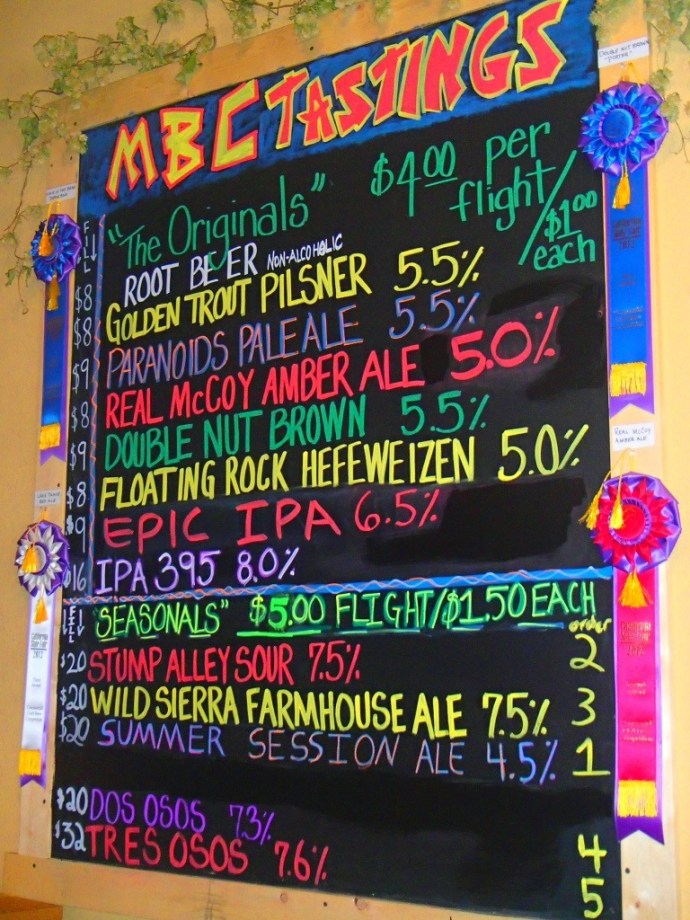 MBC TASTINGS
"The Originals" $4.00 per flight/$1.00 each
FILL
ROOT BEER NON-ALCOHOLIC
$8 GOLDEN TROUT PILSNER 5.5%
$8 PARANOIDS PALE ALE 5.5%
$9 REAL McCOY AMBER ALE 5.0%
$8 DOUBLE NUT BROWN 5.5%
$9 FLOATING ROCK HEFEWEIZEN 5.0%
$8 EPIC IPA 6.5%
$9
$16 IPA 395 8.0%
FILL "SEASONALS" $5.00 FLIGHT/$1.50 EACH
order
$20 STUMP ALLEY SOUR 7.5% 2
$20 WILD SIERRA FARMHOUSE ALE 7.5% 3
$20 SUMMER SESSION ALE 4.5% 1
$20 DOS OSOS 7.3% 4
$32 TRES OSOS 7.6% 5
DOUBLE NUT BROWN
REAL McCOY
AMBER ALE
2012